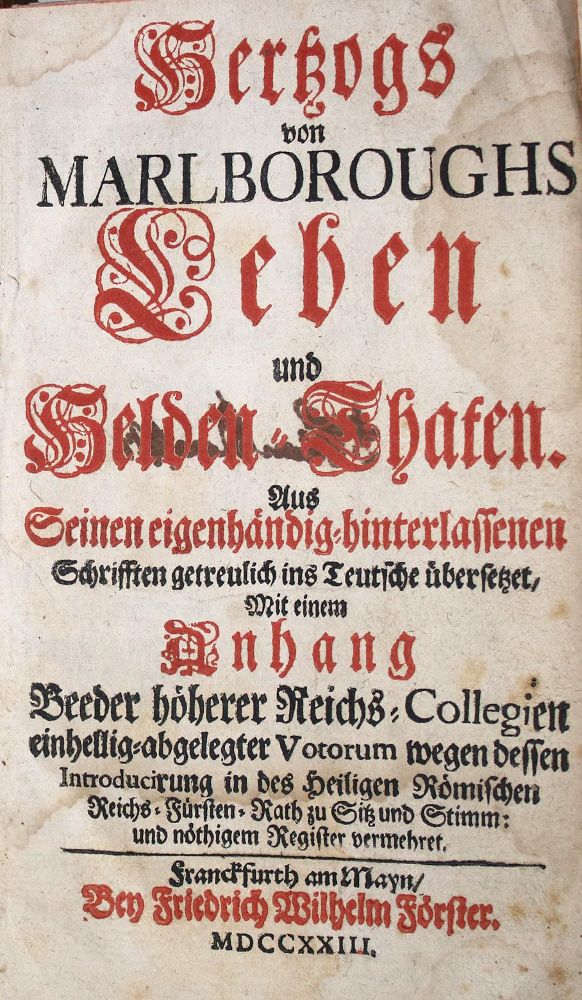 Hertzogs
von
MARLBOROUGHS
Leben
und
Helden-Thaten.
Aus
Seinen eigenhändig-hinterlassenen
Schrifften getreulich ins Teutsche übersetzet/
Mit einem
Anhang
Beeder höherer Reichs-Collegien
einhellig-abgelegter Votorum wegen dessen
Introducirung in des Heiligen Römischen
Reichs-Fürsten-Rath zu Sitz und Stimm:
und nöthigem Register vermehret.
Franckfurth am Mayn/
Bey Friedrich Wilhelm Förster.
MDCCXXIII.